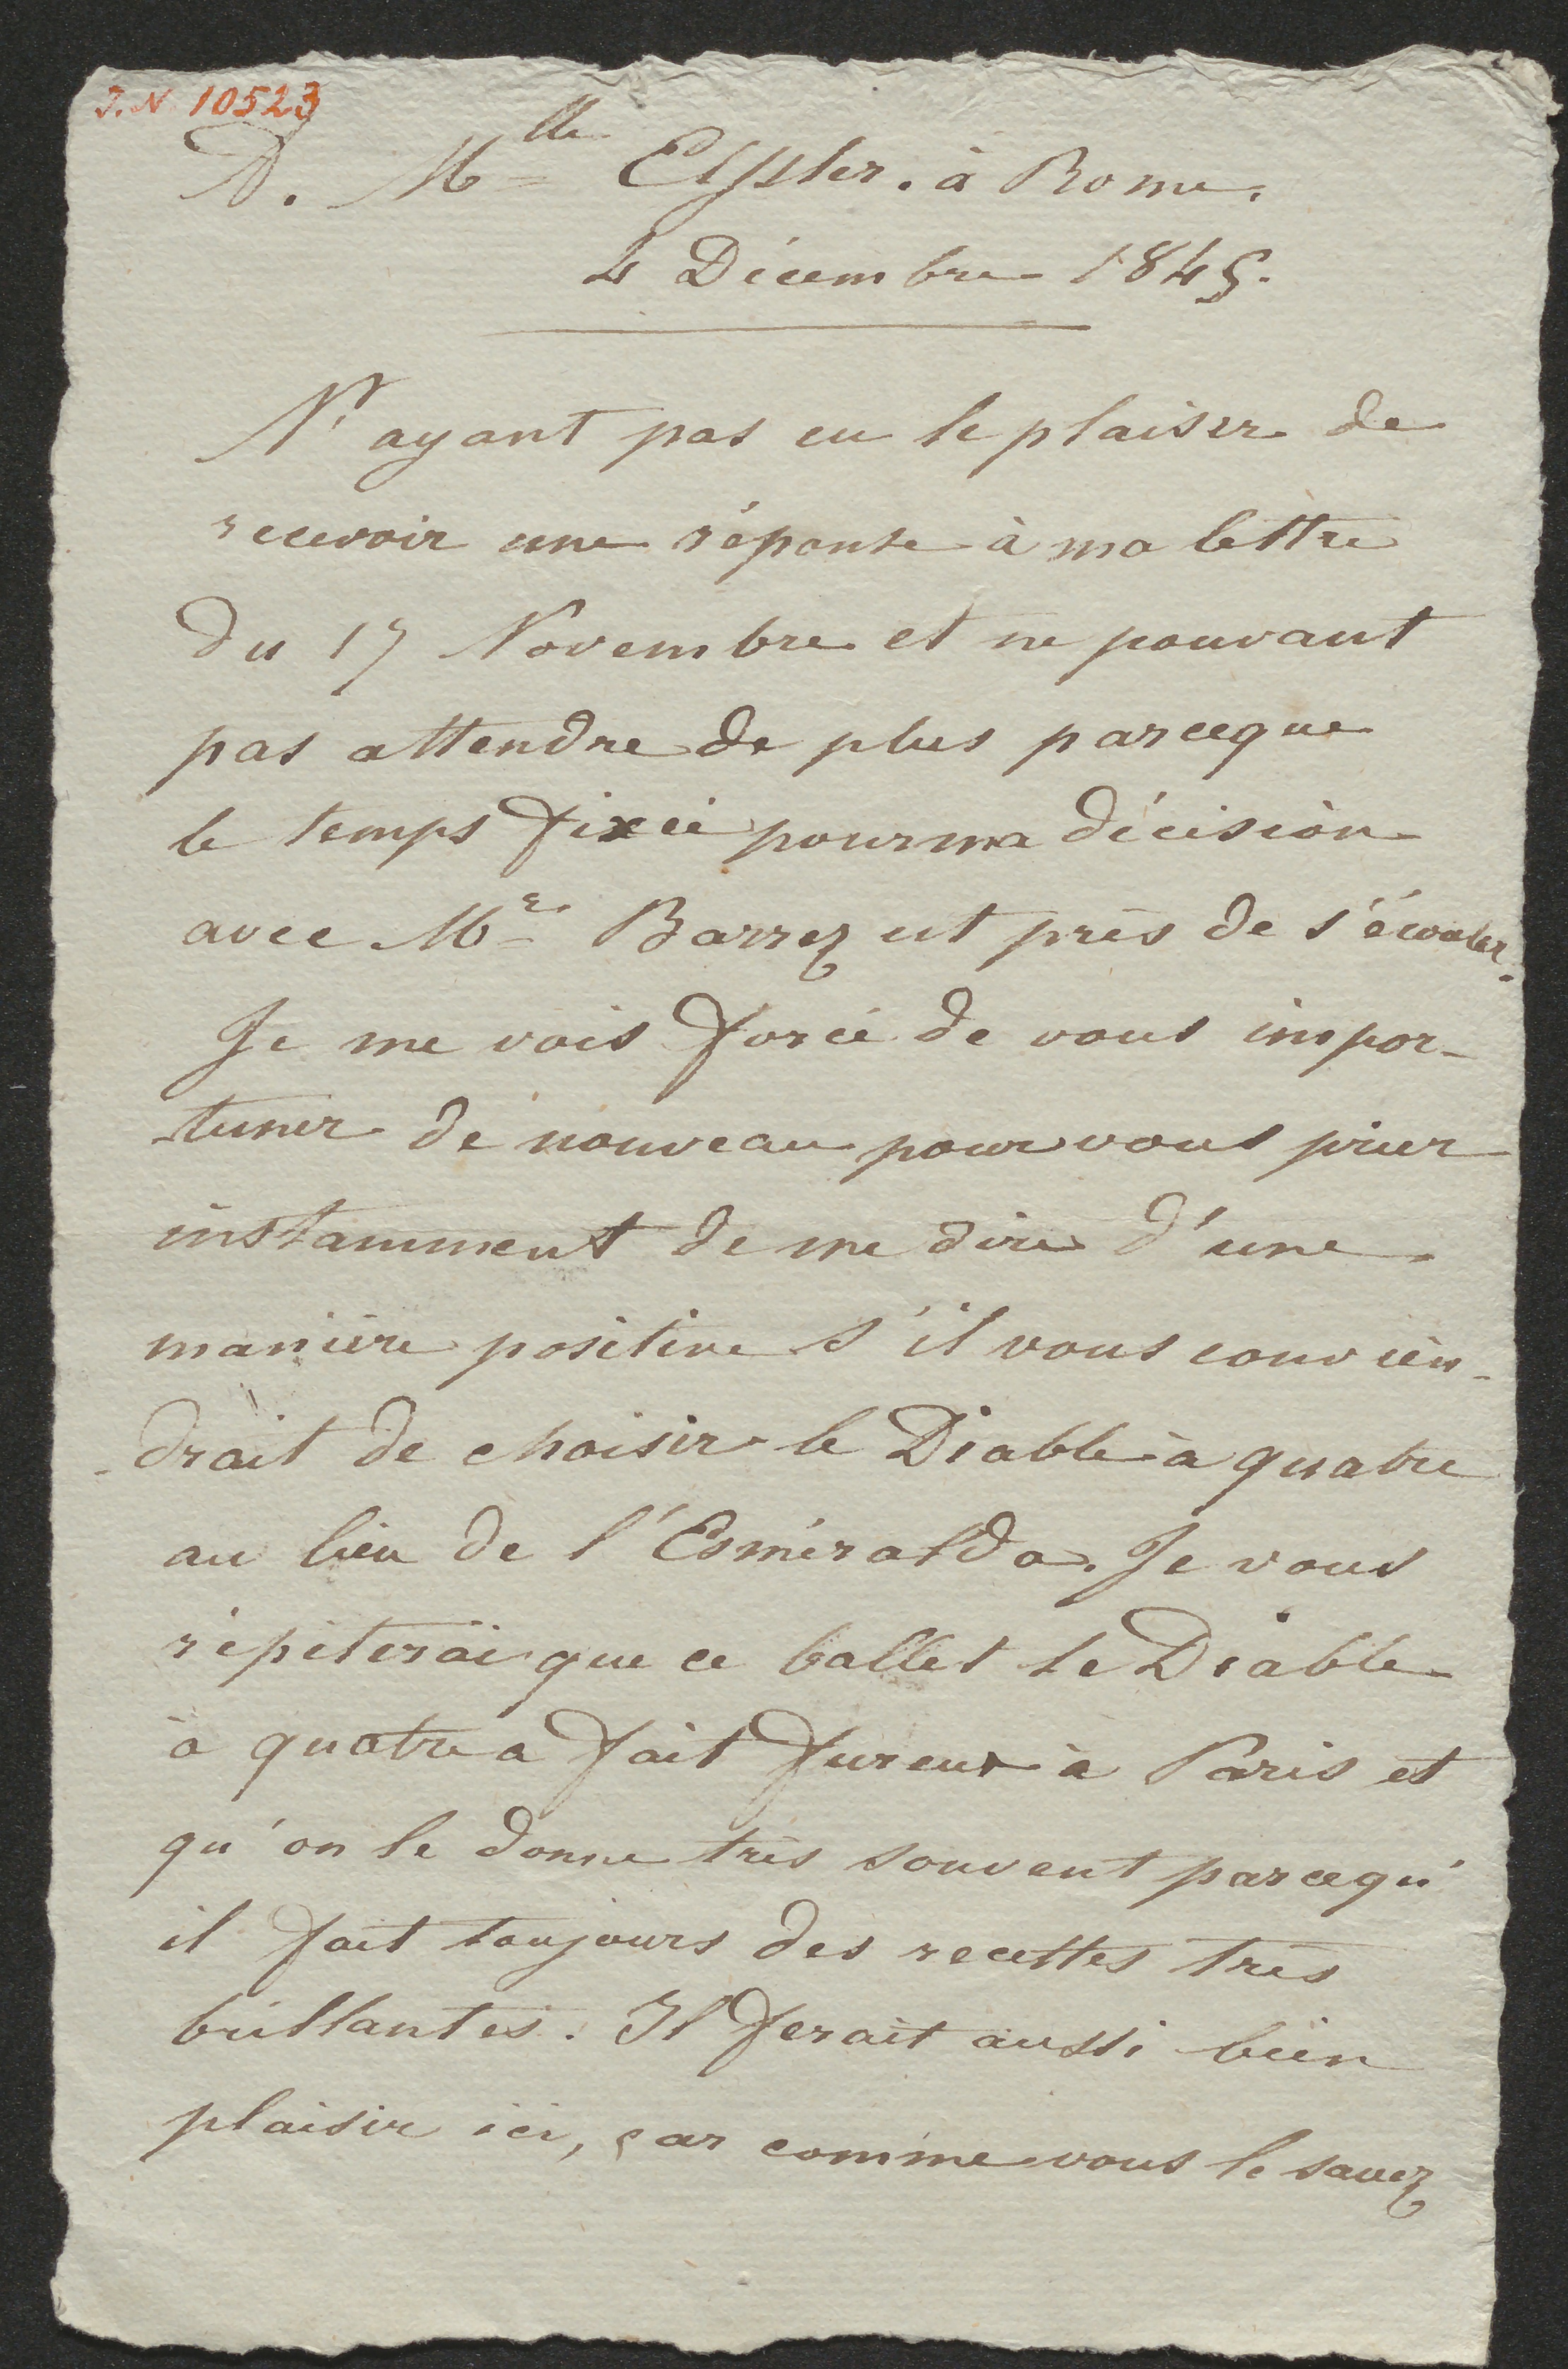 I.N. 10523
D. Mlle Elssler. à Rome.
4 Décembre 1845.
N'ayant pas eu le plaisir de
recevoir une réponse à ma lettre
du 17 Novembre et ne pouvant
pas attendre de plus parceque
le temps fixée pour ma décision
avec Mr. Barrez est près de s'écouler.
Je me vois forcé de vous impor-
-tuner de nouveau pour vous prier
instamment de me dire d'une
manière positive s'il vous convien-
-drait de choisir le Diable à quatre
au lieu de l'Esméralda. Je vous
répéterai que ce ballet le Diable
à quatre a fait fureur à Paris et
qu'on le donne très souvent parcequ'
il fait toujours des recettes très
brillantes. Il ferait aussi bien
plaisir ici, car comme vous le savez